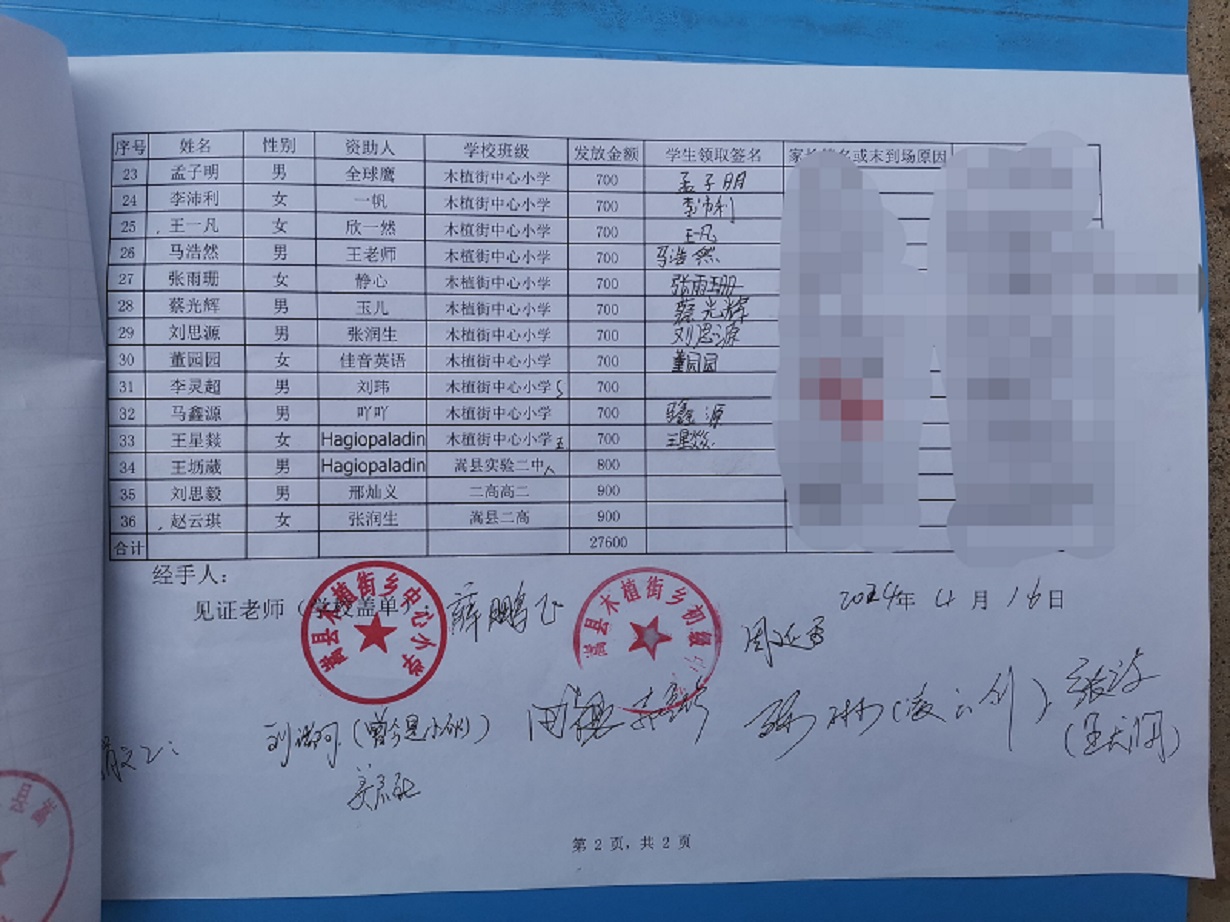 序号 姓名 性别 资助人 学校班级 发放金额 学生领取签名 家长签名或未到场原因
23 孟子明 男 全球鹰 木植街中心小学 700 孟子明
24 李沛利 女 一帆 木植街中心小学 700 李沛利
25 王一凡 女 欣一然 木植街中心小学 700 王一凡
26 马浩然 男 王老师 木植街中心小学 700 马浩然
27 张雨珊 女 静心 木植街中心小学 700 张雨珊
28 蔡光辉 男 玉儿 木植街中心小学 700 蔡光辉
29 刘思源 男 张润生 木植街中心小学 700 刘思源
30 董园园 女 佳音英语 木植街中心小学 700 董园园
31 李灵超 男 刘玮 木植街中心小学 700
32 马鑫源 男 吖吖 木植街中心小学 700 马鑫源
33 王星燚 女 Hagiopaladin 木植街中心小学五 700 王星燚
34 王坜葳 男 Hagiopaladin 嵩县实验二中 800
35 刘思毅 男 邢灿义 二高高二 900
36 赵云琪 女 张润生 嵩县二高 900
合计 27600
经手人：
见证老师（学校盖单 薛鹏飞 2024年 4月 16日
嵩县木植街乡中心小学
嵩县木植街乡初级中
(曾今是小僧)
(凌云剑)
第 2 页，共 2 页